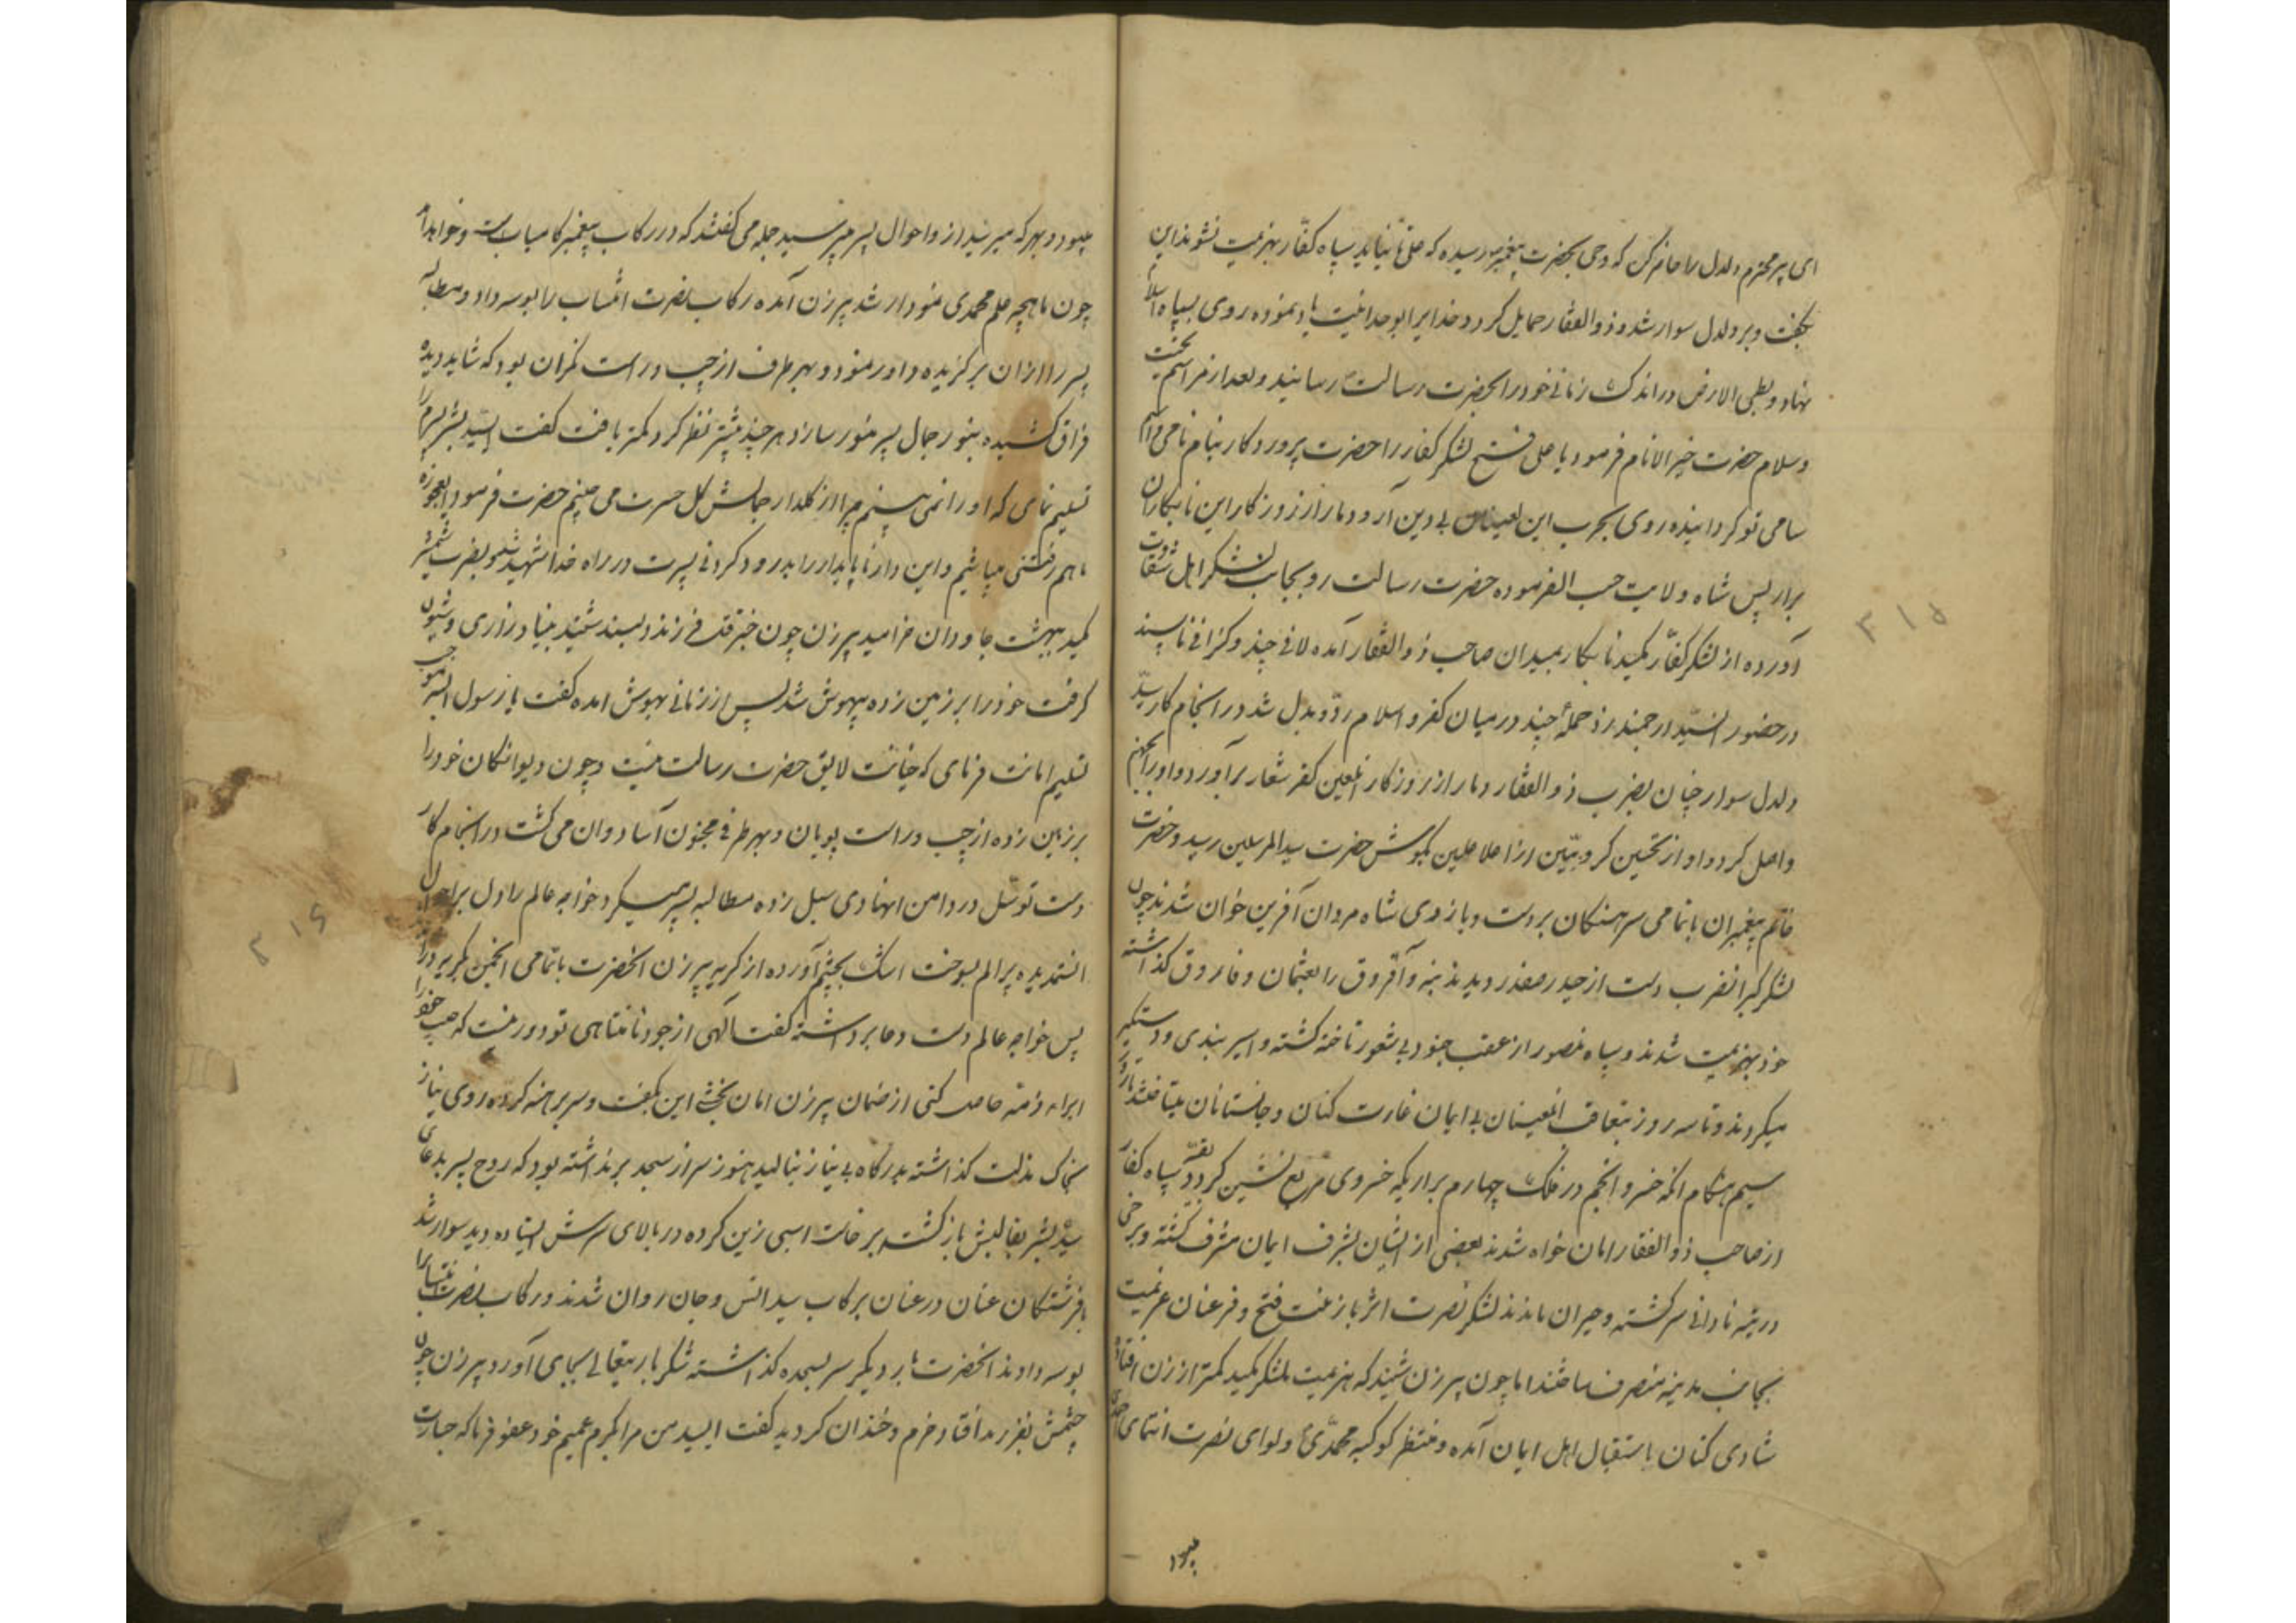 ای پیر محترم دلدل را حاضر کن که وحی بحضرت پیغمبر رسیده که علی تا نیاید سپاه کفّار بهزیمت نشوند این
بگفت و بر دلدل سوار شد و ذوالفقار حمایل کرد و خدایرا بوحدانیت یاد نموده روی بسپاه اسلام
نهاد و بطی الارض در اندک زمانی خود را بحضرت رسالت رسانید و بعد از مراسم تحیّت
و سلام حضرت خیر الانام فرمود یا علی فتح لشکر کفار را حضرت پروردگار بنام نامی و اسم
سامی تو گردانیده روی بحرب این لعینان بی دین آر و دمار از روزگار این نابکاران
برار پس شاه ولایت حسب الفرموده حضرت رسالت رو بجانب لشکر اهل شقاوت
آورده از لشکر کفّار یکصد نابکار بمیدان صاحب ذوالفقار آمده لافی چند و کزافی ناپسند
در حضور انسیّد ارجمند زد حملهٔ چند در میان کفر و اسلام ردّ و بدل شد در انجام کار سیّد
دلدل سوار چنان بضرب ذوالفقار دمار از روزکار انلعین کفر شعار برآورد و او را بجهنم
واصل کرد و اواز تحسین کروبیّین از اعلا علیین بکوش حضرت سید المرسلین رسید و حضرت
خاتم پیغمبران با تمامی سرهنکان بر دست و بازوی شاه مردان آفرین خوان شدند چون
لشکر کبر انضرب دست از حیدر صفدر دیدند بنه و آذوق را بعثمان و فاروق کذاشته
خود بهزیمت شدند و سپاه منصور از عقب جنود بی شعور تاخته کشته و اسیر بندی و دستکیر
میکردند و تا سه روز بتعاقب انلعینان بی ایمان غارت کنان و جانستانان میتاختند تا روز
سیم هنکام انکه خسرو انجم در فلک چهارم براریکه خسروی مربع نشین کردد بقیّه سپاه کفار
از صاحب ذوالفقار امان خواه شدند بعضی از ایشان بشرف ایمان مشرف کشته و برخی
در تیه نادانی سرکشته و حیران ماندند لشکر نصرت اثر با زینت فتح و فر عنان عزیمت
بجانب مدینه منصرف ساختند اما چون پیر زن شنید که هزیمت بلشکر یکصد کمتر از زن افتاد
شادی کنان باستقبال اهل ایمان آمده و منتظر کوکبه محمّدی و لوای نصرت انتمای احمدی
میبود و بهر که میرسید از و احوال پسر میپرسید جمله می کفتند که در رکاب پیغمبر کامیاب است و خواهد آمد
چون ماهیچه علم محمدی نمودار شد پیر زن آمده رکاب نصرت انتساب را بوسه داد و مطالبه
پسر را از ان برکزیده داور نمود و بهر طرف از چپ و راست نکران بود که شاید دیده
فراق کشیده بنور جمال پسر منور سازد هر چند بیشتر نظر کرد کمتر یافت کفت ای سیّد بشر پسرم را
تسلیم نمای که او را نمی بینم چرا از کلدار جمالش کل حسرت می چینم حضرت فرمود ای عجوزه
ما هم رفتنی میباشیم و این دار ناپایدار را بدرود کردنی پسرت در راه خدا شهید شد و بضرب شمشیر
کمید ببهشت جاودان خرامید پیر زن چون خبر قتل فرزند دلبند شنید بنیاد زاری و شیون
کرفت خود را بر زمین زده بیهوش شد پس از زمانی بهوش امده کفت یا رسول الله بموجب
تسلیم امانت فرمای که خیانت لایق حضرت رسالت نیست و چون دیوانکان خود را
بر زمین زده از چپ و راست پویان و بهر طرفی مجنون آسا دوان می کشت در انجام کار
دست توسّل در دامن انهادی سبل زده مطالبه پسر میکرد خواجه عالم را دل بر احوال
انستمدیده پر الم بسوخت اشک بچشم آورده از کریه پیر زن انحضرت با تمامی انجمن بکریه در آمد
پس خواجه عالم دست دعا برداشته کفت الهی از جود نامتناهی تو دور نیست که حبیب خود را
ابراء ذمّه حاصل کنی از ضمان پیر زن امان بخشی این بکفت و سر برهنه کرده روی نیاز
بخاک مذلت کذاشته بدرکاه بی نیاز بنالید هنوز سر از سجده برنداشته بود که روح پسر بدعای
سیّد بشر بقالبش باز کشت برخاست اسبی زین کرده در بالای سرش ایستاده دید سوار شد
با فرشتکان عنان در عنان برکاب سید انس و جان روان شدند و رکاب نصرت انتساب را
بوسه دادند انحضرت بار دیکر سر بسجده کذاشته شکر باریتعالی بجای آورد پیر زن چون
چشمش بفرزند افتاد خرم و خندان کردید کفت ای سید من مرا بکرم عمیم خود عفو فرما که جسارت
میبود
۳۱۵
۳۱۶